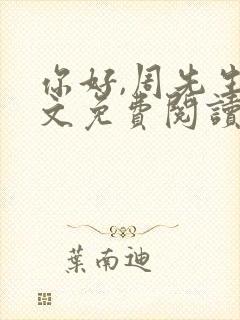 你好,周先生
文免費閱讀
葉南迪